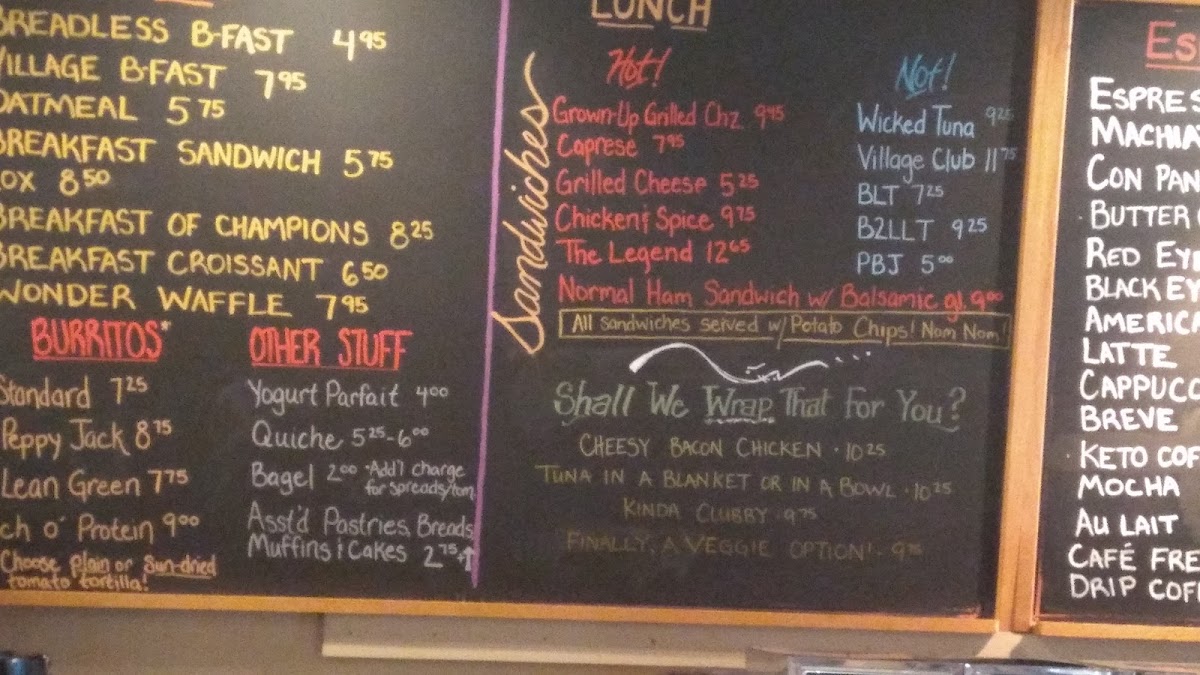 BREADLESS B-FAST 4.95
VILLAGE B-FAST 7.95
OATMEAL 5.75
BREAKFAST SANDWICH 5.75
LOX 8.50
BREAKFAST OF CHAMPIONS 8.25
BREAKFAST CROISSANT 6.50
WONDER WAFFLE 7.95
BURRITOS*
Standard 7.25
Peppy Jack 8.75
Lean Green 7.75
ch o' Protein 9.00
Choose plain or Sun-dried
tomato tortilla!
OTHER STUFF
Yogurt Parfait 4.00
Quiche 5.25-6.00
Bagel 2.00 *Add'l charge
for spreads/tom
Asst'd Pastries, Breads
Muffins & Cakes 2.75+↑
LUNCH
Sandwiches
Hot!
Grown-Up Grilled Chz 9.45
Caprese 7.95
Grilled Cheese 5.25
Chicken & Spice 9.75
The Legend 12.65
Normal Ham Sandwich w/ Balsamic gl. 9.00
Not!
Wicked Tuna 9.25
Village Club 11.75
BLT 7.25
B2LLT 9.25
PBJ 5.00
All Sandwiches served w/ Potato Chips! Nom Nom!
Shall We Wrap That For You?
CHEESY BACON CHICKEN · 10.25
TUNA IN A BLANKET OR IN A BOWL · 10.25
KINDA CLUBBY · 9.75
FINALLY, A VEGGIE OPTION! · 9.75
Es
ESPRES
MACHIA
CON PAN
BUTTER
RED EY
BLACK EY
AMERICA
LATTE
CAPPUCC
BREVE
KETO COF
MOCHA
AU LAIT
CAFÉ FRE
DRIP COFF